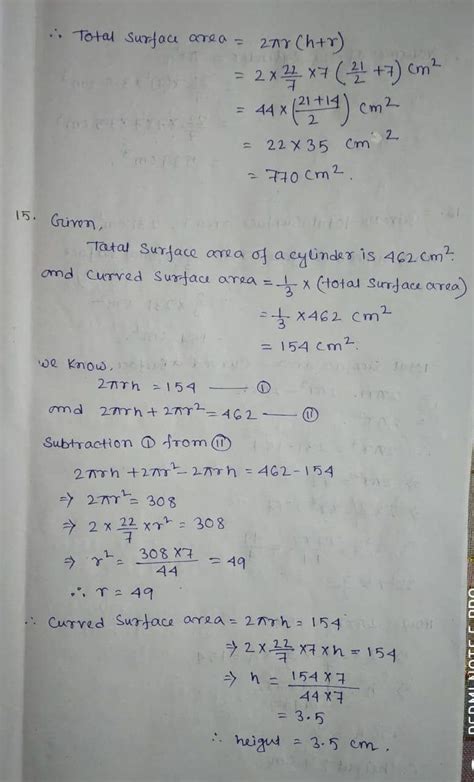 ∴ Total Surface area = 2πr (h+r)
= 2 × 22/7 × 7 (21/2 + 7) cm²
= 44 × (21+14/2) cm²
= 22 × 35 cm²
= 770 cm².
15. Given,
Tatal Surface area of a cylinder is 462 cm².
and Curved Surface area = 1/3 × (total Surface area)
= 1/3 × 462 cm²
= 154 cm².
we know,
2πrh = 154 — ①
and 2πrh + 2πr² = 462 — ⑪
Subtraction ① from ⑪
2πrh + 2πr² - 2πrh = 462 - 154
⇒ 2πr² = 308
⇒ 2 × 22/7 × r² = 308
⇒ r² = 308 × 7/44 = 49
∴ r = 49
∴ Curved Surface area = 2πrh = 154
⇒ 2 × 22/7 × 7 × h = 154
⇒ h = 154 × 7/44 × 7
= 3.5
∴ height = 3.5 cm.